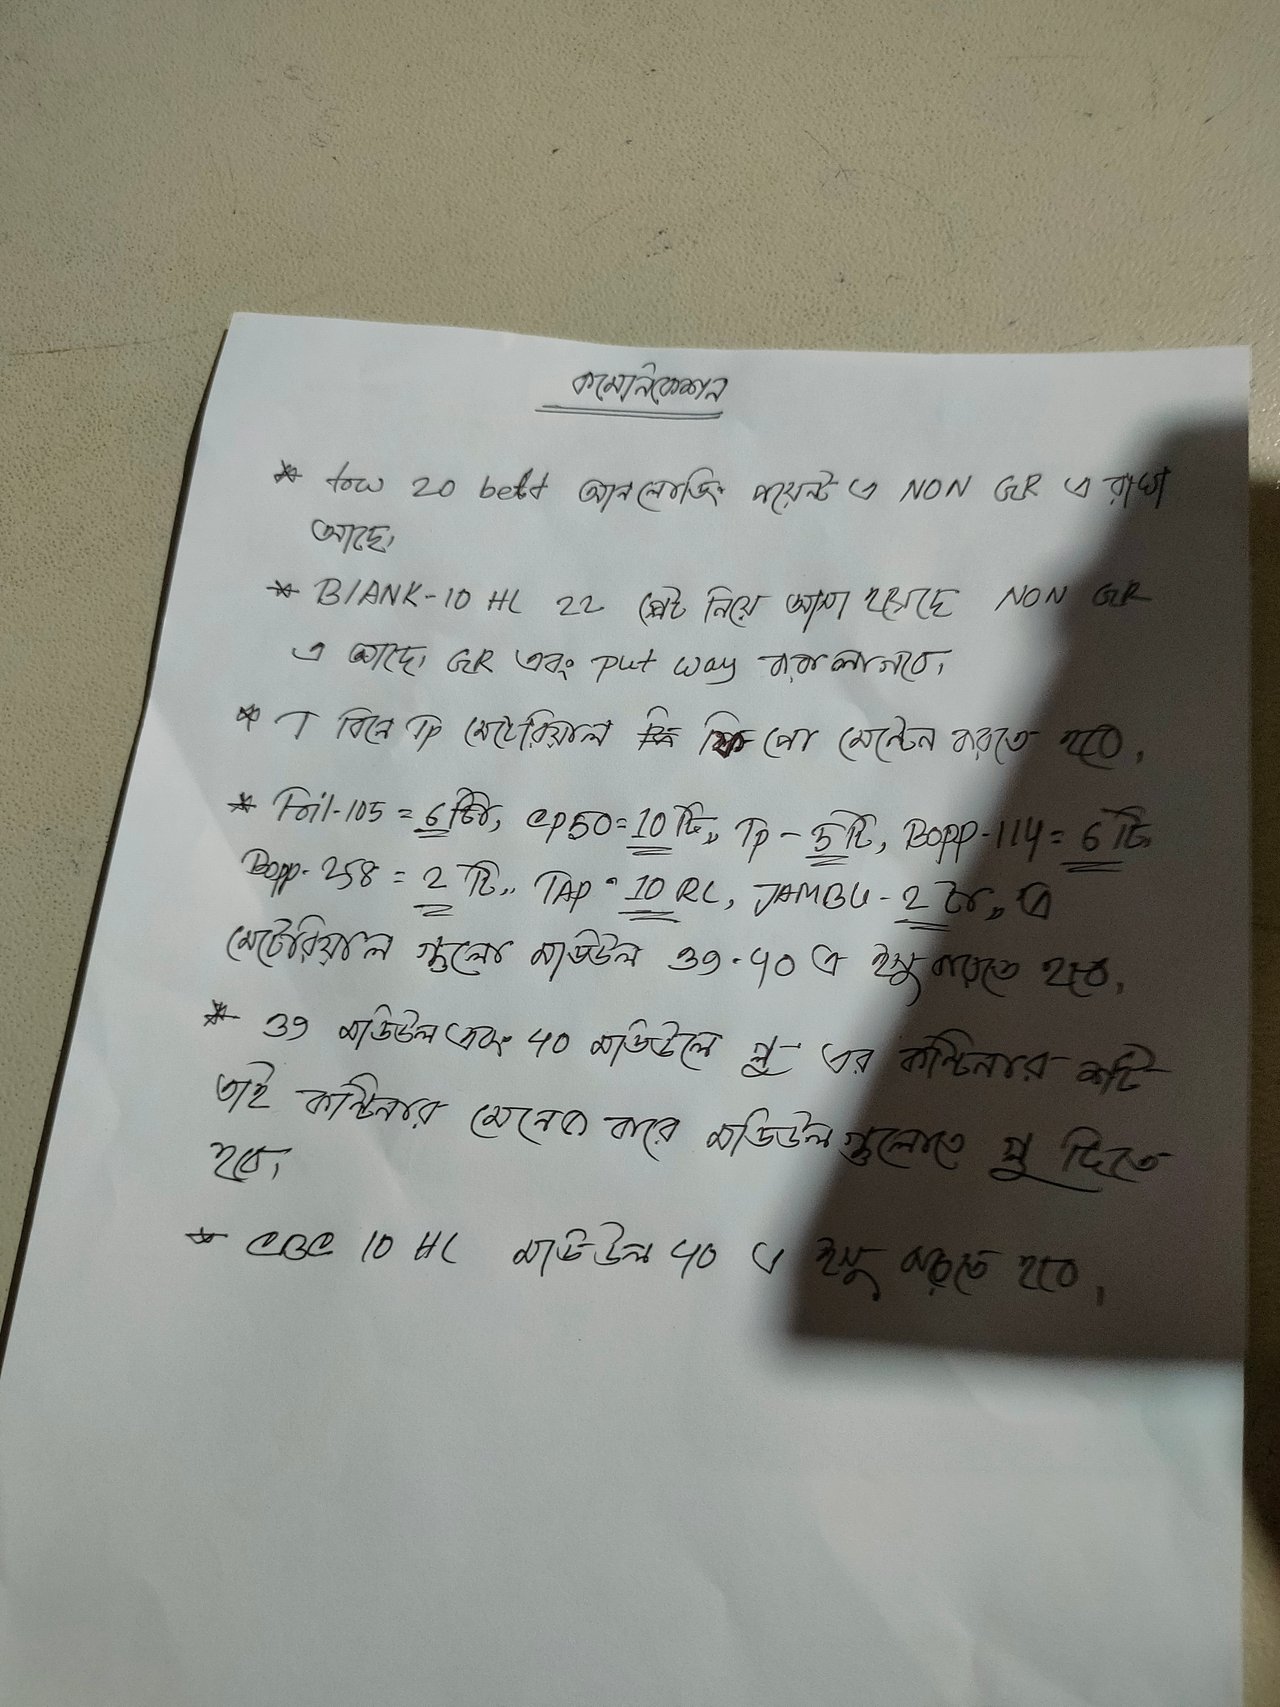 কমোনিকেশান
* tow 20 belt আনলোডিং পয়েন্ট এ NON GR এ রাখা
আছে।
* BlANK-10 HL 22 প্লেট নিয়ে আসা হয়েছে NON GR
এ আছে। GR এবং put way করা লাগবে।
* T বিনে Tp মেটেরিয়াল পো মেন্টেন করতে হবে।
* Foil-105 = 6 টি, CP50 = 10 টি,, Tp - 5 টি, Bopp-114 = 6 টি
Bopp-258 = 2 টি,, TAP - 10 RL, JAMBU - 2 টা,, এ
মেটেরিয়াল গুলো মডিউল 39-40 এ ইসু করতে হবে।
* 39 মডিউল এবং 40 মডিউলে গ্লু এর কন্টিনার শর্ট
তাই কন্টিনার মেনেজ করে মডিউল গুলোতে গ্লু দিতে
হবে।
* CBC 10 HL মডিউল 40 এ ইসু করতে হবে।